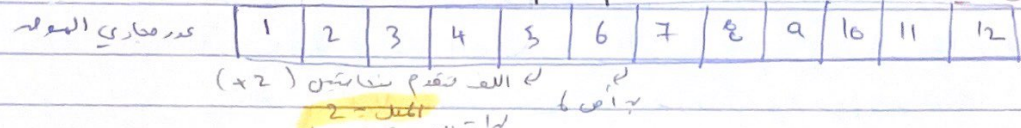 عدد مجاري الموحد 1 2 3 4 5 6 7 8 9 10 11 12
اللف تقدم خانتين (+2)
6
الميل = 2